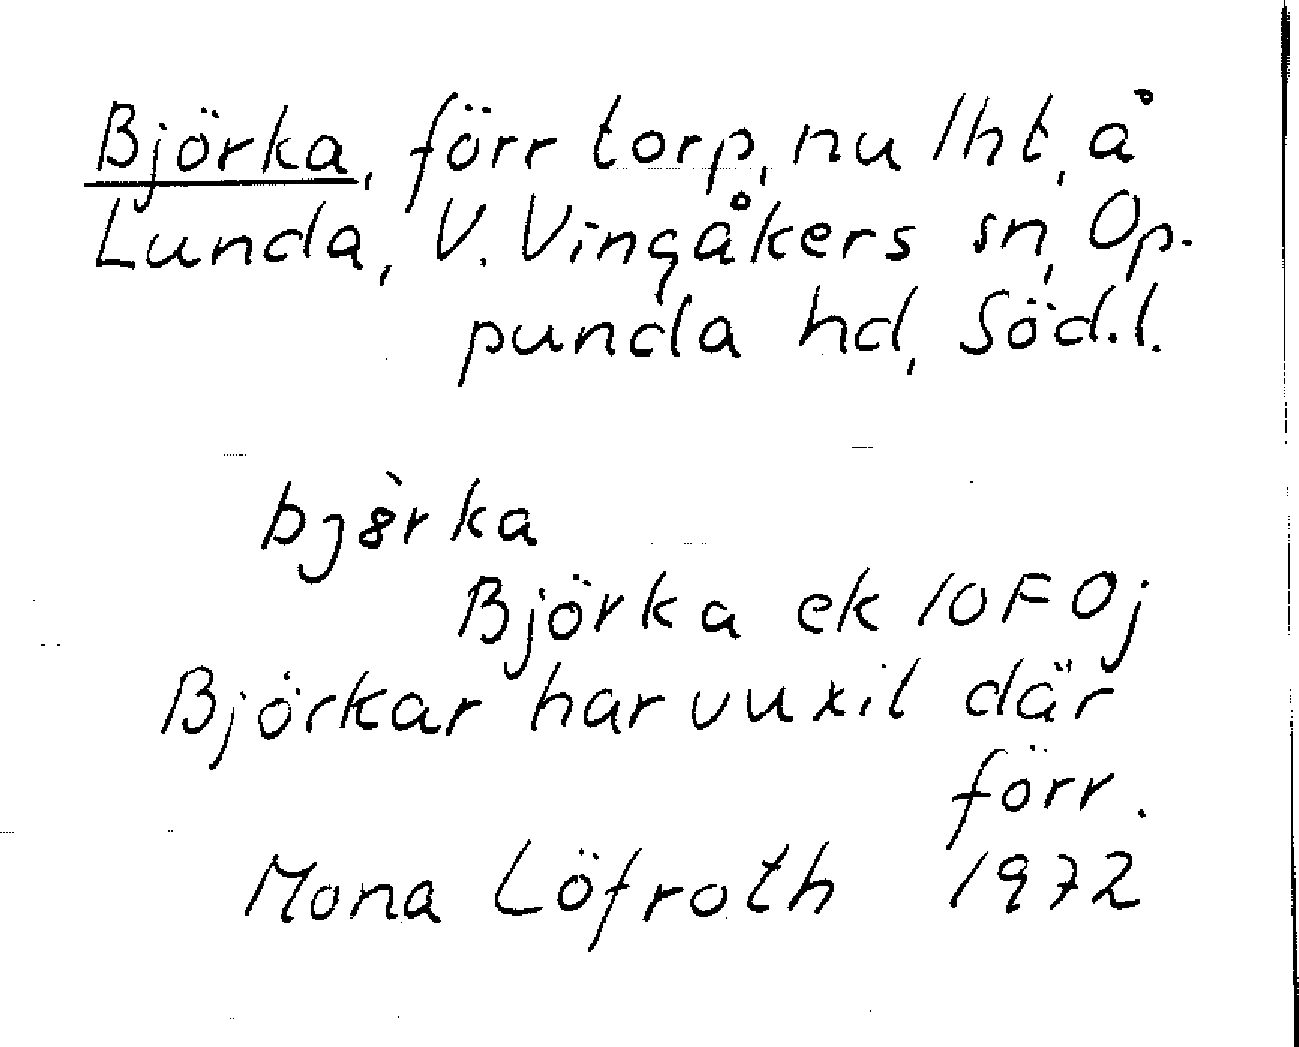 Björka, förr torp, nu lht, å
Lunda, V. Vingåkers sn, Op-
punda hd, Söd.l.
Björka ek 10F Oj
Björkar har vuxil där
förr.
Mona Löfroth 1972